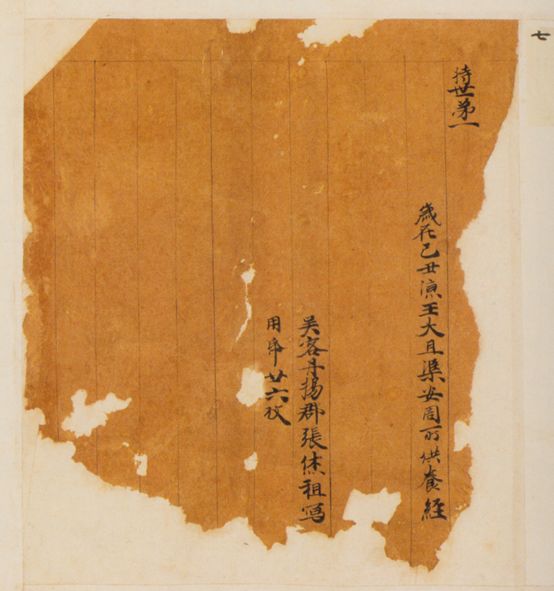 七
持世第一
歲在己丑涼王大且渠安周所供養經
吳客丹揚郡張休祖寫
用帋廿六枚